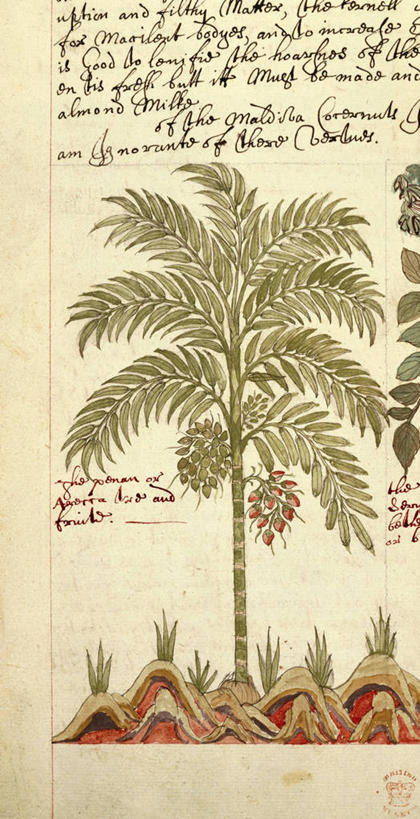 uption and filthy Matter, the kernell
for Macilent bodyes, and to increase
is Good to lenifie the hoarsnes of the
en tis fresh but it Must be made and
almond Milke
of the Maldiva Cocernuts
am Ignorante of there Vertues.
The penan or
Arecca tree and
fruite.
the